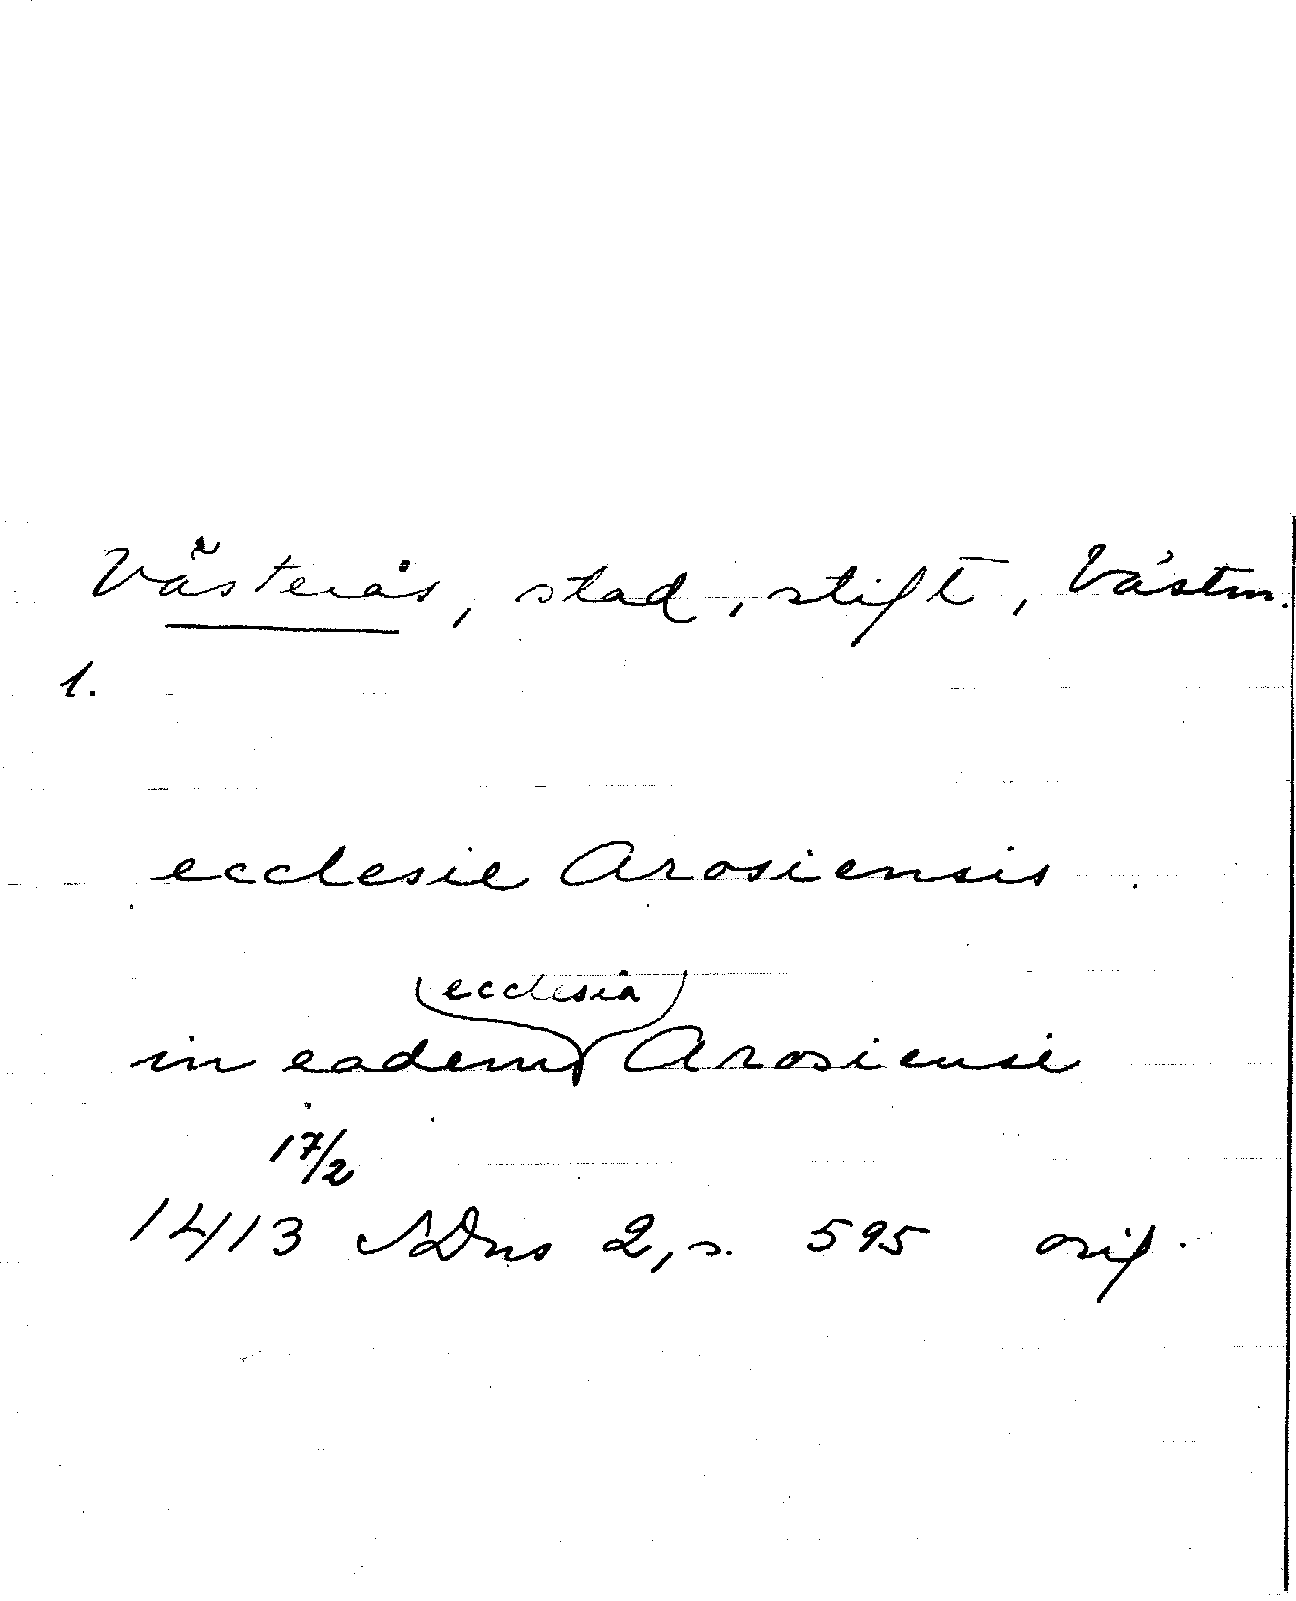 Västerås, stad, stift, Västm.
1.
ecclesie Arosiensis
(ecclesia)
in eadem Arosiensi
17/2
1413 SDns 2, s. 595 orig.